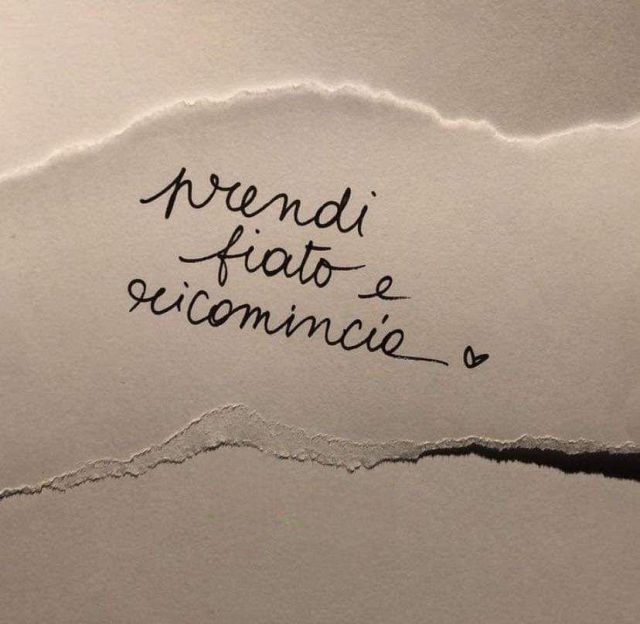 prendi
fiato e
ricomincia